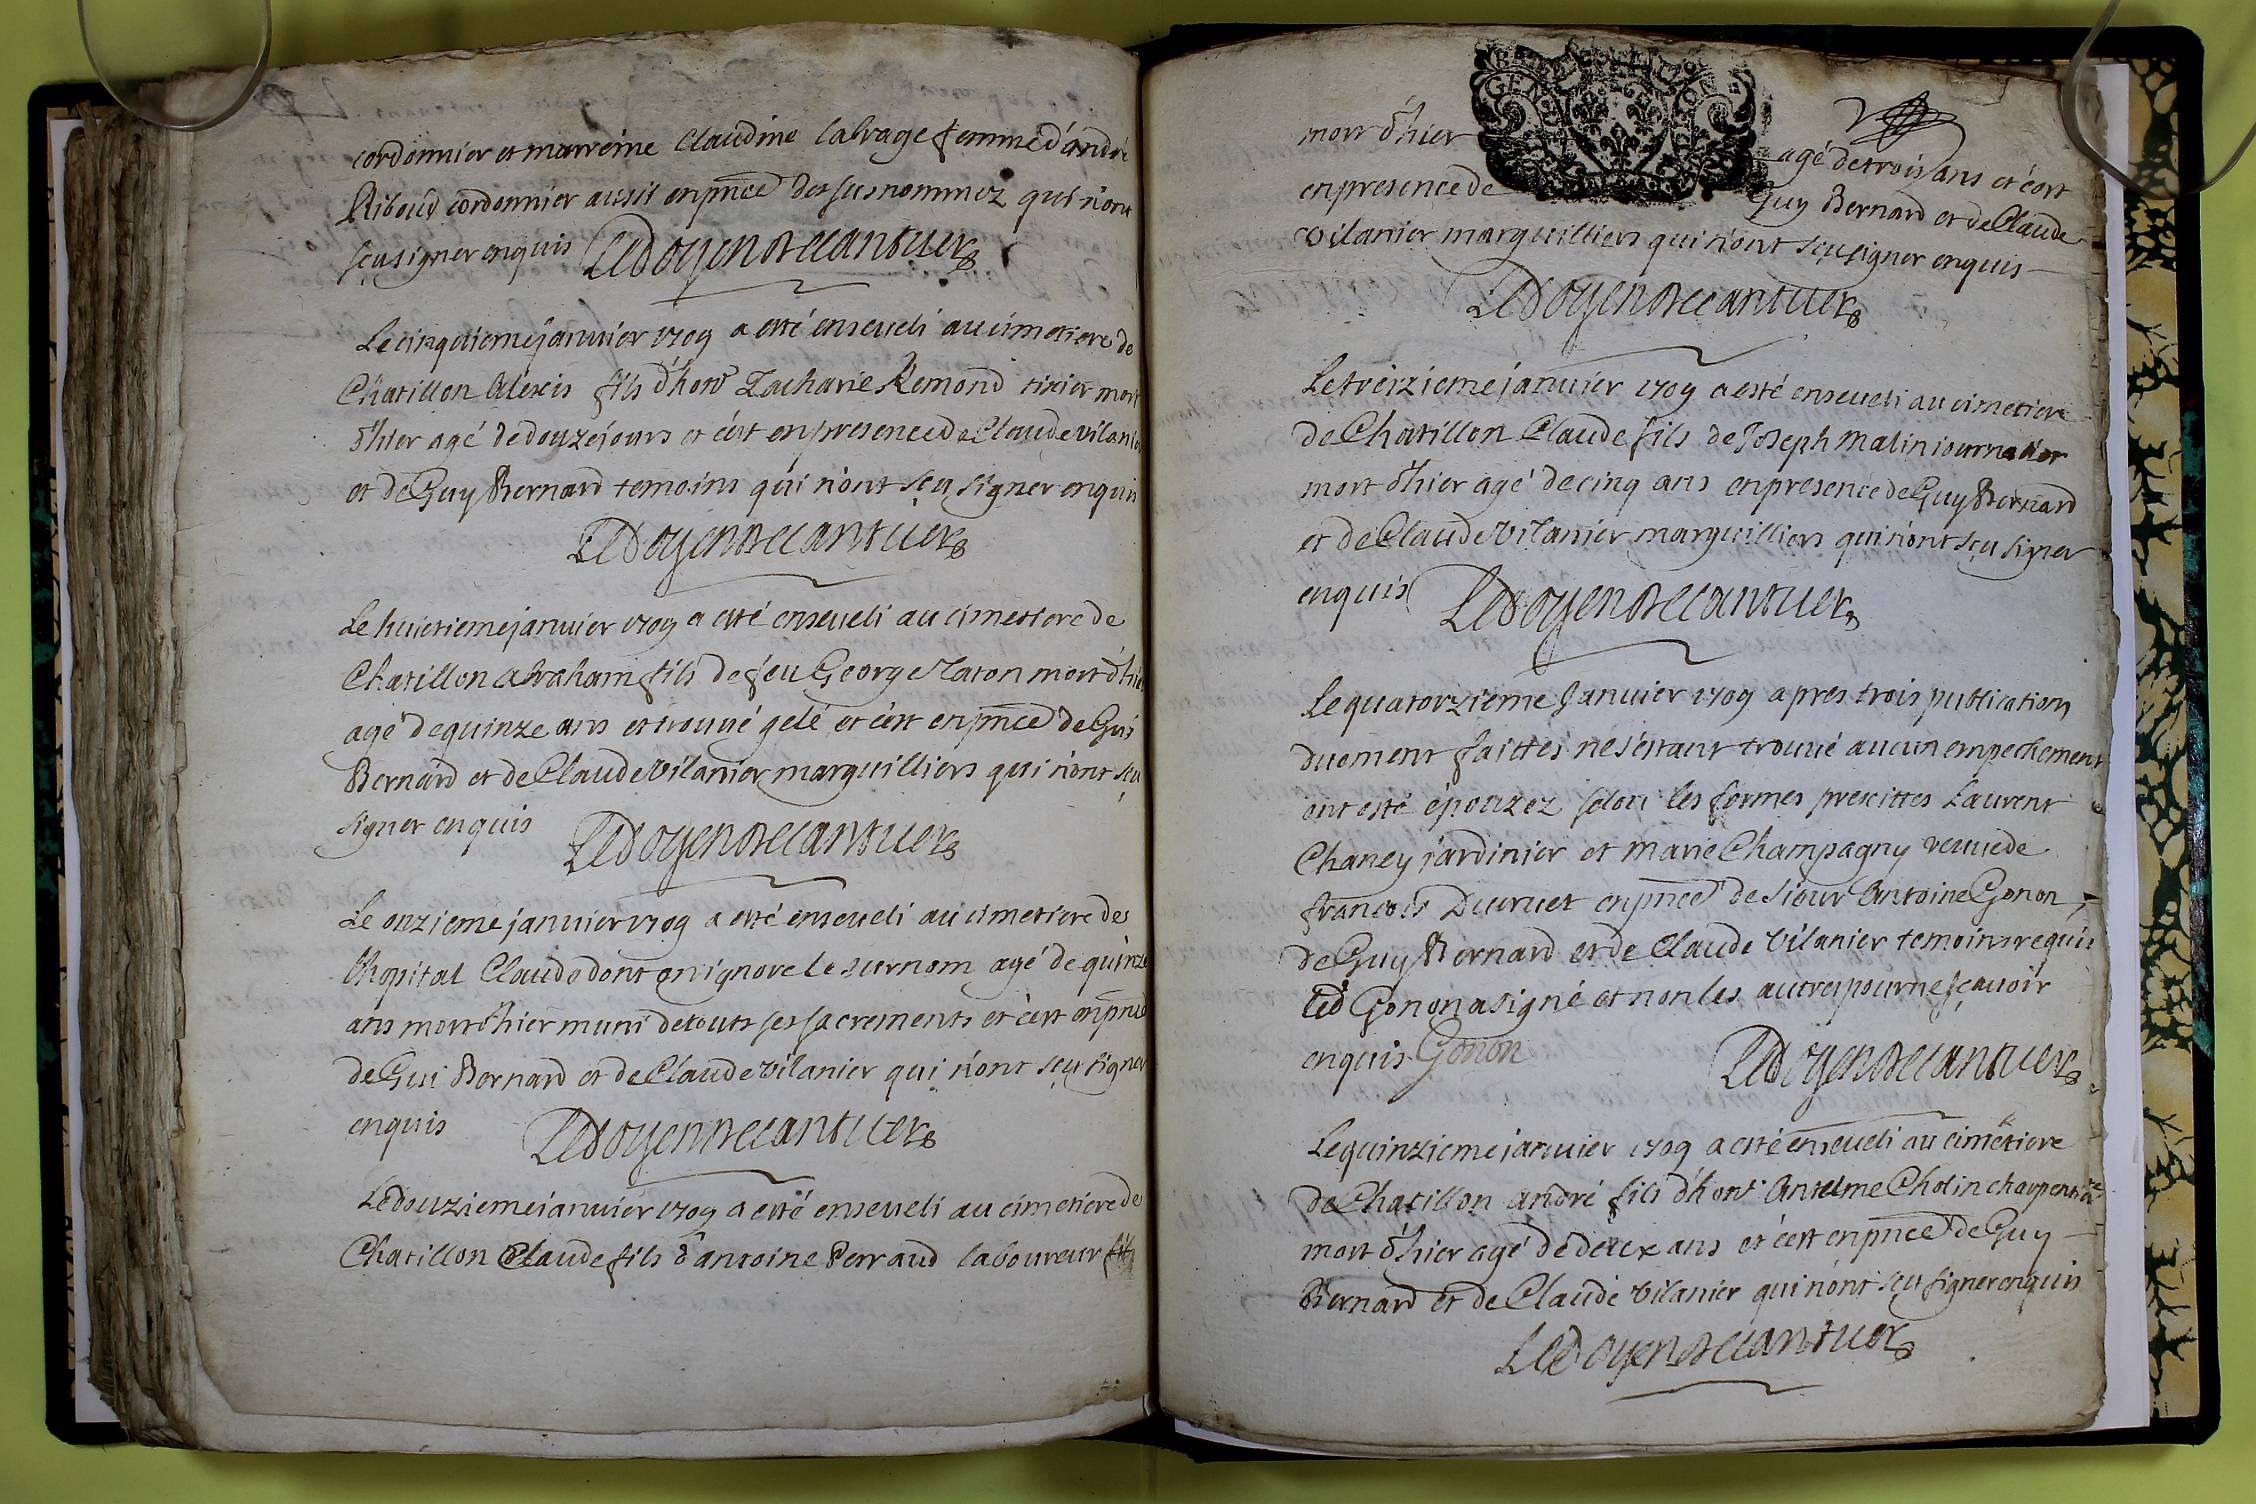 cordonnier et marreine Claudine labrage femme d'andré
Riboud cordonnier aussi en pnce des susnommez qui n'ont
sçu signer enquis Ledoyen Decantuer
Le cinquieme janvier 1709 a esté enseveli au cimetiere de
Chatillon Alexis fils d'hont Zacharie Remond tixier mort
d'hier agé de douze jours et c'est en presence de Claude vilanier
et de Guy Bernard temoins qui n'ont sçu signer enquis
Ledoyen Decantuer
Le huictieme janvier 1709 a esté enseveli au cimetiere de
Chatillon abraham fils de feu George Taton mort d'hier
agé de quinze ans et trouvé gelé et c'est en pnce de Gui
Bernard et de Claude vilanier marguilliers qui n'ont sçu
signer enquis Ledoyen Decantuer
Le onzieme janvier 1709 a esté enseveli au cimetiere des
l'hopital Claude dont on ignore le surnom agé de quinze
ans mort d'hier muni de touts ses sacrements et c'est en pnce
de Gui Bernard et de Claude vilanier qui n'ont sçu signer
enquis Ledoyen Decantuer
Le douzieme janvier 1709 a esté enseveli au cimetiere de
Chatillon Claude fils d'antoine Perraud laboureur
mort d'hier agé de trois ans et c'est
en presence de Guy Bernard et de Claude
vilanier marguilliers qui n'ont sçu signer enquis
Ledoyen Decantuer
Le treizieme janvier 1709 a esté enseveli au cimetiere
de Chatillon Claude fils de Joseph malin journalier
mort d'hier agé de cinq ans en presence de Guy Bernard
et de Claude vilanier marguilliers qui n'ont sçu signer
enquis Ledoyen Decantuer
Le quatorzieme Janvier 1709 apres trois publication
duement faittes ne s'estant trouvé aucun empechement
ont esté épouzez selon les formes prescittes Laurent
Chaney jardinier et marie Champagny veuve de
françois Ducruet en pnce de sieur Antoine Gonon
de Guy Bernard et de Claude vilanier temoins requis
led Gonon a signé et non les autres pour ne sçavoir
enquis Gonon Ledoyen Decantuer
Le quinzieme janvier 1709 a esté enseveli au cimetiere
de Chatillon andré fils d'hont Antelme Cholin charpentier
mort d'hier agé de deux ans et c'est en pnce de Guy
Bernard et de Claude vilanier qui n'ont sçu signer enquis
Ledoyen Decantuer